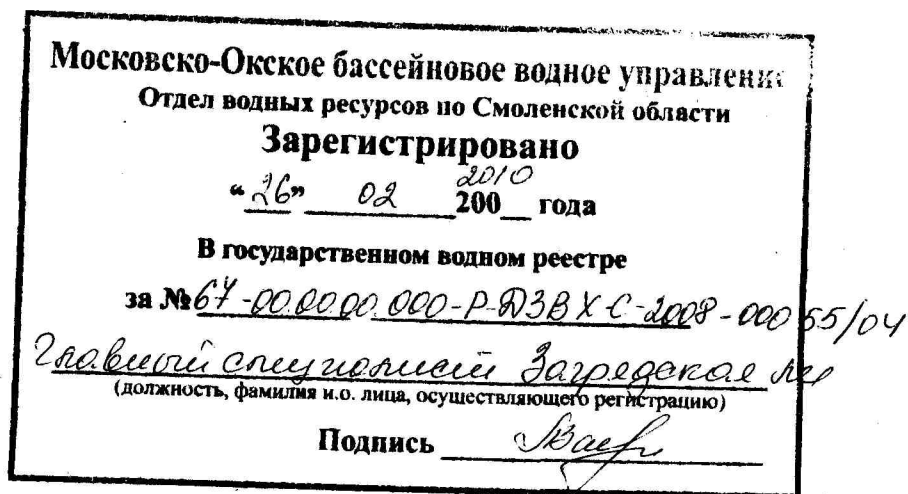 Московско-Окское бассейновое водное управление
Отдел водных ресурсов по Смоленской области
Зарегистрировано
2010
“26” 02 200__ года
В государственном водном реестре
за № 67-00.00.00.000-Р-ДЗВХ-С-2008-00055/04
Главный специалист Загрядская
(должность, фамилия и.о. лица, осуществляющего регистрацию)
Подпись